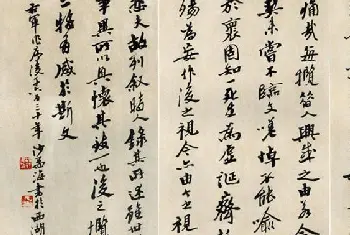 痛哉每攬昔人興感之由若合
契未嘗不臨文嗟悼不能喻
於懷固知一死生為虛誕齊
殤為妄作後之視今亦由今之視
悲夫故列敘時人錄其所述雖世
異所以興懷其致一也後之攬
亦將有感於斯文
右軍作序後千六百三十年沙孟海書於西湖